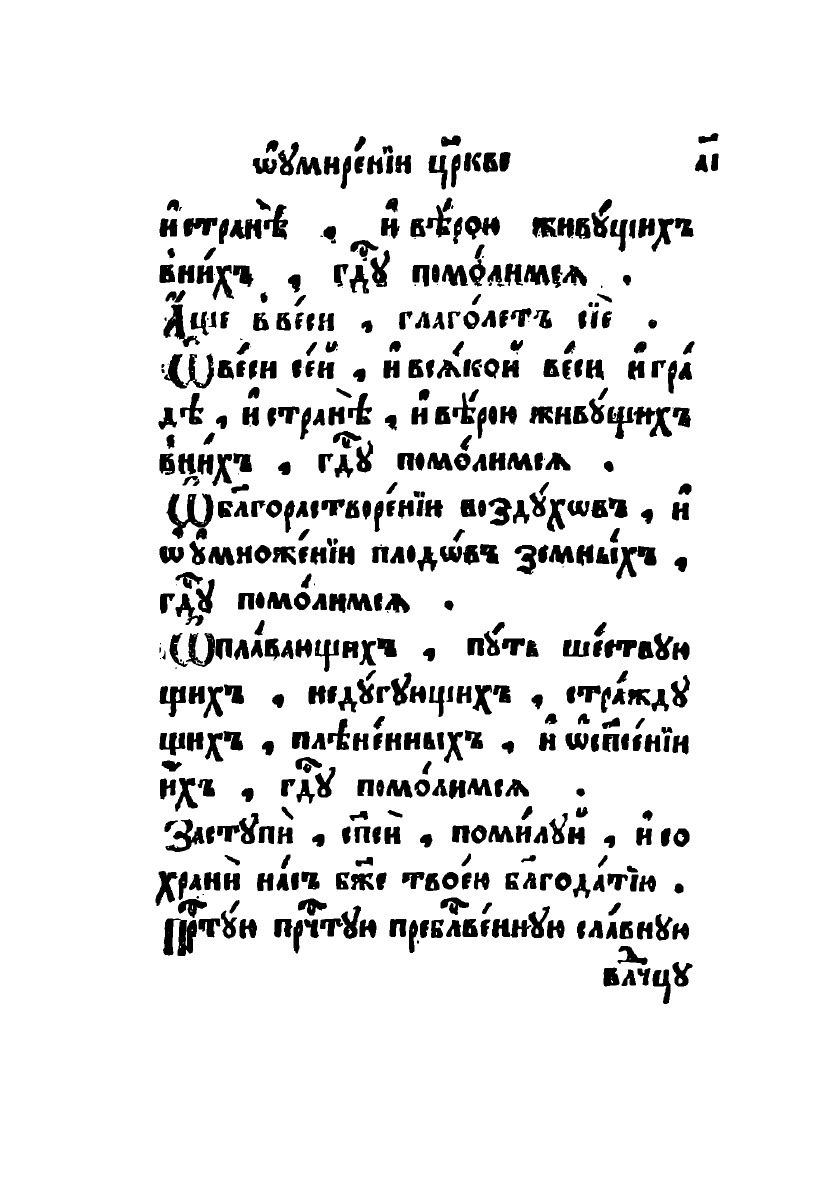 ѡ҆ꙋмире́нїи цр҃кве а҃і
и҆странѣ̀ , и҆вѣ́рою живꙋ́щихъ
вни́хъ , гдⷭ҇ꙋ помо́лимсѧ .
А҆́ще вве́си , глаго́летъ сїѐ .
Ѿве́си се́й , и҆всѧ́кой ве́си и҆гра́
дѣ , и҆странѣ̀ , и҆вѣ́рою живꙋ́щихъ
вни́хъ , гдⷭ҇ꙋ помо́лимсѧ .
Ѡ҆бл҃горастворе́нїи воздꙋ́хѡвъ , и҆
ѡ҆ꙋмноже́нїи плодѡ́въ земны́хъ ,
гдⷭ҇ꙋ помо́лимсѧ .
Ѡ҆пла́вающихъ , пꙋ́ть ше́ствꙋю
щихъ , недꙋ́гꙋющихъ , стра́ждꙋ
щихъ , плѣне́нныхъ , и҆ ѡ҆сп҃се́нїи
и҆́хъ , гдⷭ҇ꙋ помо́лимсѧ .
Застꙋпѝ , сп҃сѝ , поми́лꙋй , и҆со
хранѝ на́съ бж҃е твое́ю бл҃года́тїю .
Прⷭ҇тꙋ́ю пречⷭ҇тꙋю пребл҃гве́ннꙋю сла́внꙋю
влⷣчцꙋ